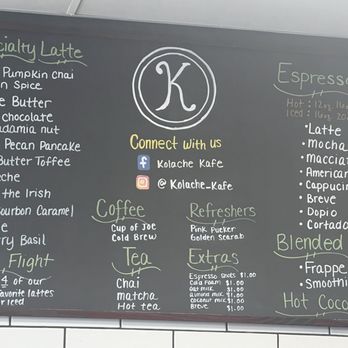 cialty Latte
Pumpkin chai
n Spice
e Butter
chocolate
adamia nut
Pecan Pancake
Butter Toffee
eche
the Irish
ourbon Caramel
e
rry Basil
Flight
4 of our
favorite lattes
r iced
K
Connect with us
Kolache Kafe
@ Kolache_Kafe
Coffee
Cup of Joe
Cold Brew
Tea
Chai
matcha
Hot tea
Refreshers
Pink Pucker
Golden Scarab
Extras
Espresso shots $1.00
Cold Foam $1.00
oat milk $1.00
almond milk $1.00
coconut milk $1.00
Breve $1.00
Espresso
Hot: 12oz, 16oz
Iced: 16oz, 20
• Latte
• Mocha
• macciat
• American
• Cappucin
• Breve
• Dopio
• Cortado
Blended
• Frappe
• Smoothi
Hot Coco